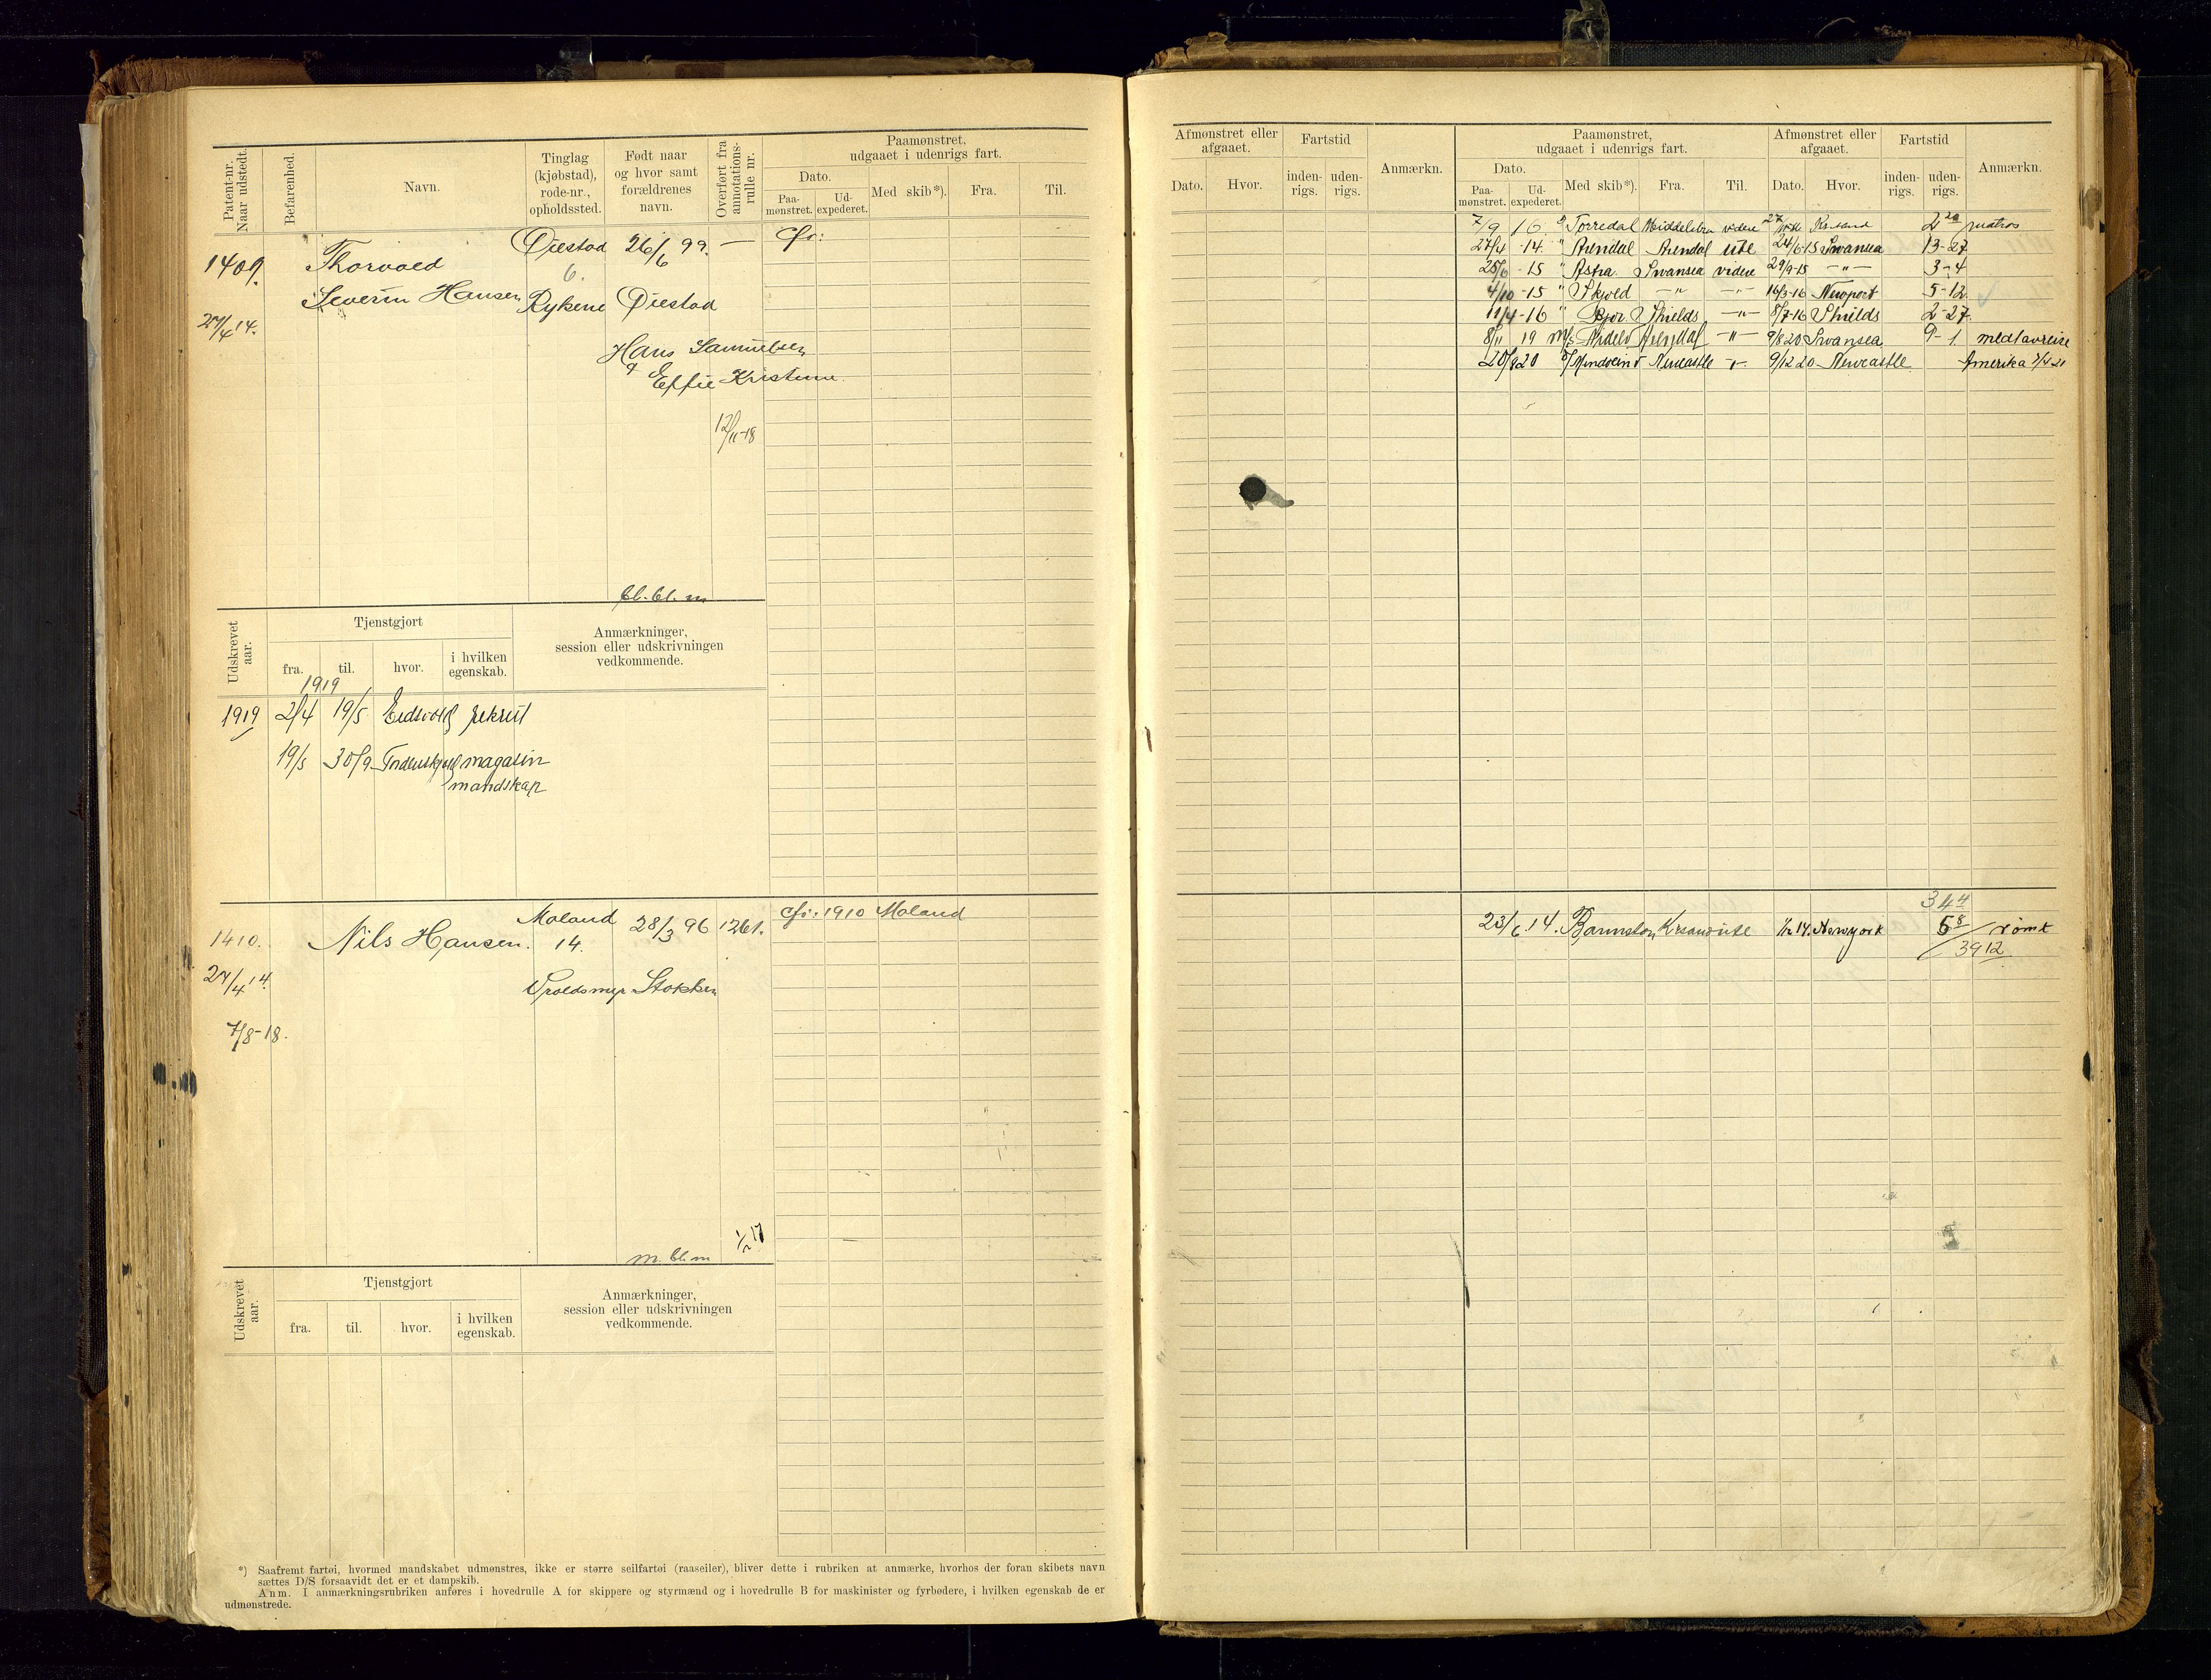 Patent-nr. Naar udstedt.
Befarenhed.
Navn.
Tinglag (kjøbstad), rode-nr., opholdssted.
Født naar og hvor samt forældrenes navn.
Overført fra annotations-rulle nr.
Paamønstret, udgaaet i udenrigs fart.
Dato.
Paa-mønstret.
Ud-expederet.
Med skib*).
Fra.
Til.
1409.
27/4 14.
Thorvald
Severin Hansen
Øiestad
6.
Rykene
26/6 99.
Øiestad
Hans Samuelsen
&
Effie Kristine
—
12/11-18
cfr:
bl. bl. m
Udskrevet aar.
Tjenstgjort
fra.
til.
hvor.
i hvilken egenskab.
Anmærkninger, session eller udskrivningen vedkommende.
1919
1919 2/4 19/5 Eidsvold rekrut
19/5 30/9 Tordenskjold magasin
mandskap
1410.
27/4 14.
7/8-18.
Nils Hansen.
Moland
14.
Vroldsmyr
28/3 96
Stokken
1261.
1/2 17
cfr: 1910 Moland
m. bl. m
Udskrevet aar.
Tjenstgjort
fra.
til.
hvor.
i hvilken egenskab.
Anmærkninger, session eller udskrivningen vedkommende.
*) Saafremt fartøi, hvormed mandskabet udmønstres, ikke er større seilfartøi (raaseiler), bliver dette i rubriken at anmærke, hvorhos der foran skibets navn
sættes D/S forsaavidt det er et dampskib.
Anm. I anmærkningsrubriken anføres i hovedrulle A for skippere og styrmænd og i hovedrulle B for maskinister og fyrbødere, i hvilken egenskab de er
udmønstrede.
Afmønstret eller afgaaet.
Dato.
Hvor.
Fartstid
inden-rigs.
uden-rigs.
Anmærkn.
Paamønstret, udgaaet i udenrigs fart.
Dato.
Paa-mønstret.
Ud-expederet.
Med skib*).
Fra.
Til.
Afmønstret eller afgaaet.
Dato.
Hvor.
Fartstid
inden-rigs.
uden-rigs.
Anmærkn.
7/9 16 " Torredal videre Krsand 2 20 matros
27/4 -14 " Arendal Arendal ute 24/6-15 Swansea 13-27
25/6 -15 " Astra Swansea videre 29/9-15 —"— 3-4
4/10 -15 " Skjold —"— —"— 16/3-16 Newport 5-12
11/4-16 " Bjor Shields —"— 8/7-16 Shields 2-27
8/11 19 M/S —"— 9/8 20 Swansea 9-1 med avreise
20/9 20 Newcastle —"— 9/12 20 Newcastle Amerika
344
23/6 14. Krsand ute 1/12 14. Newyork 5 8 rømt
39 12